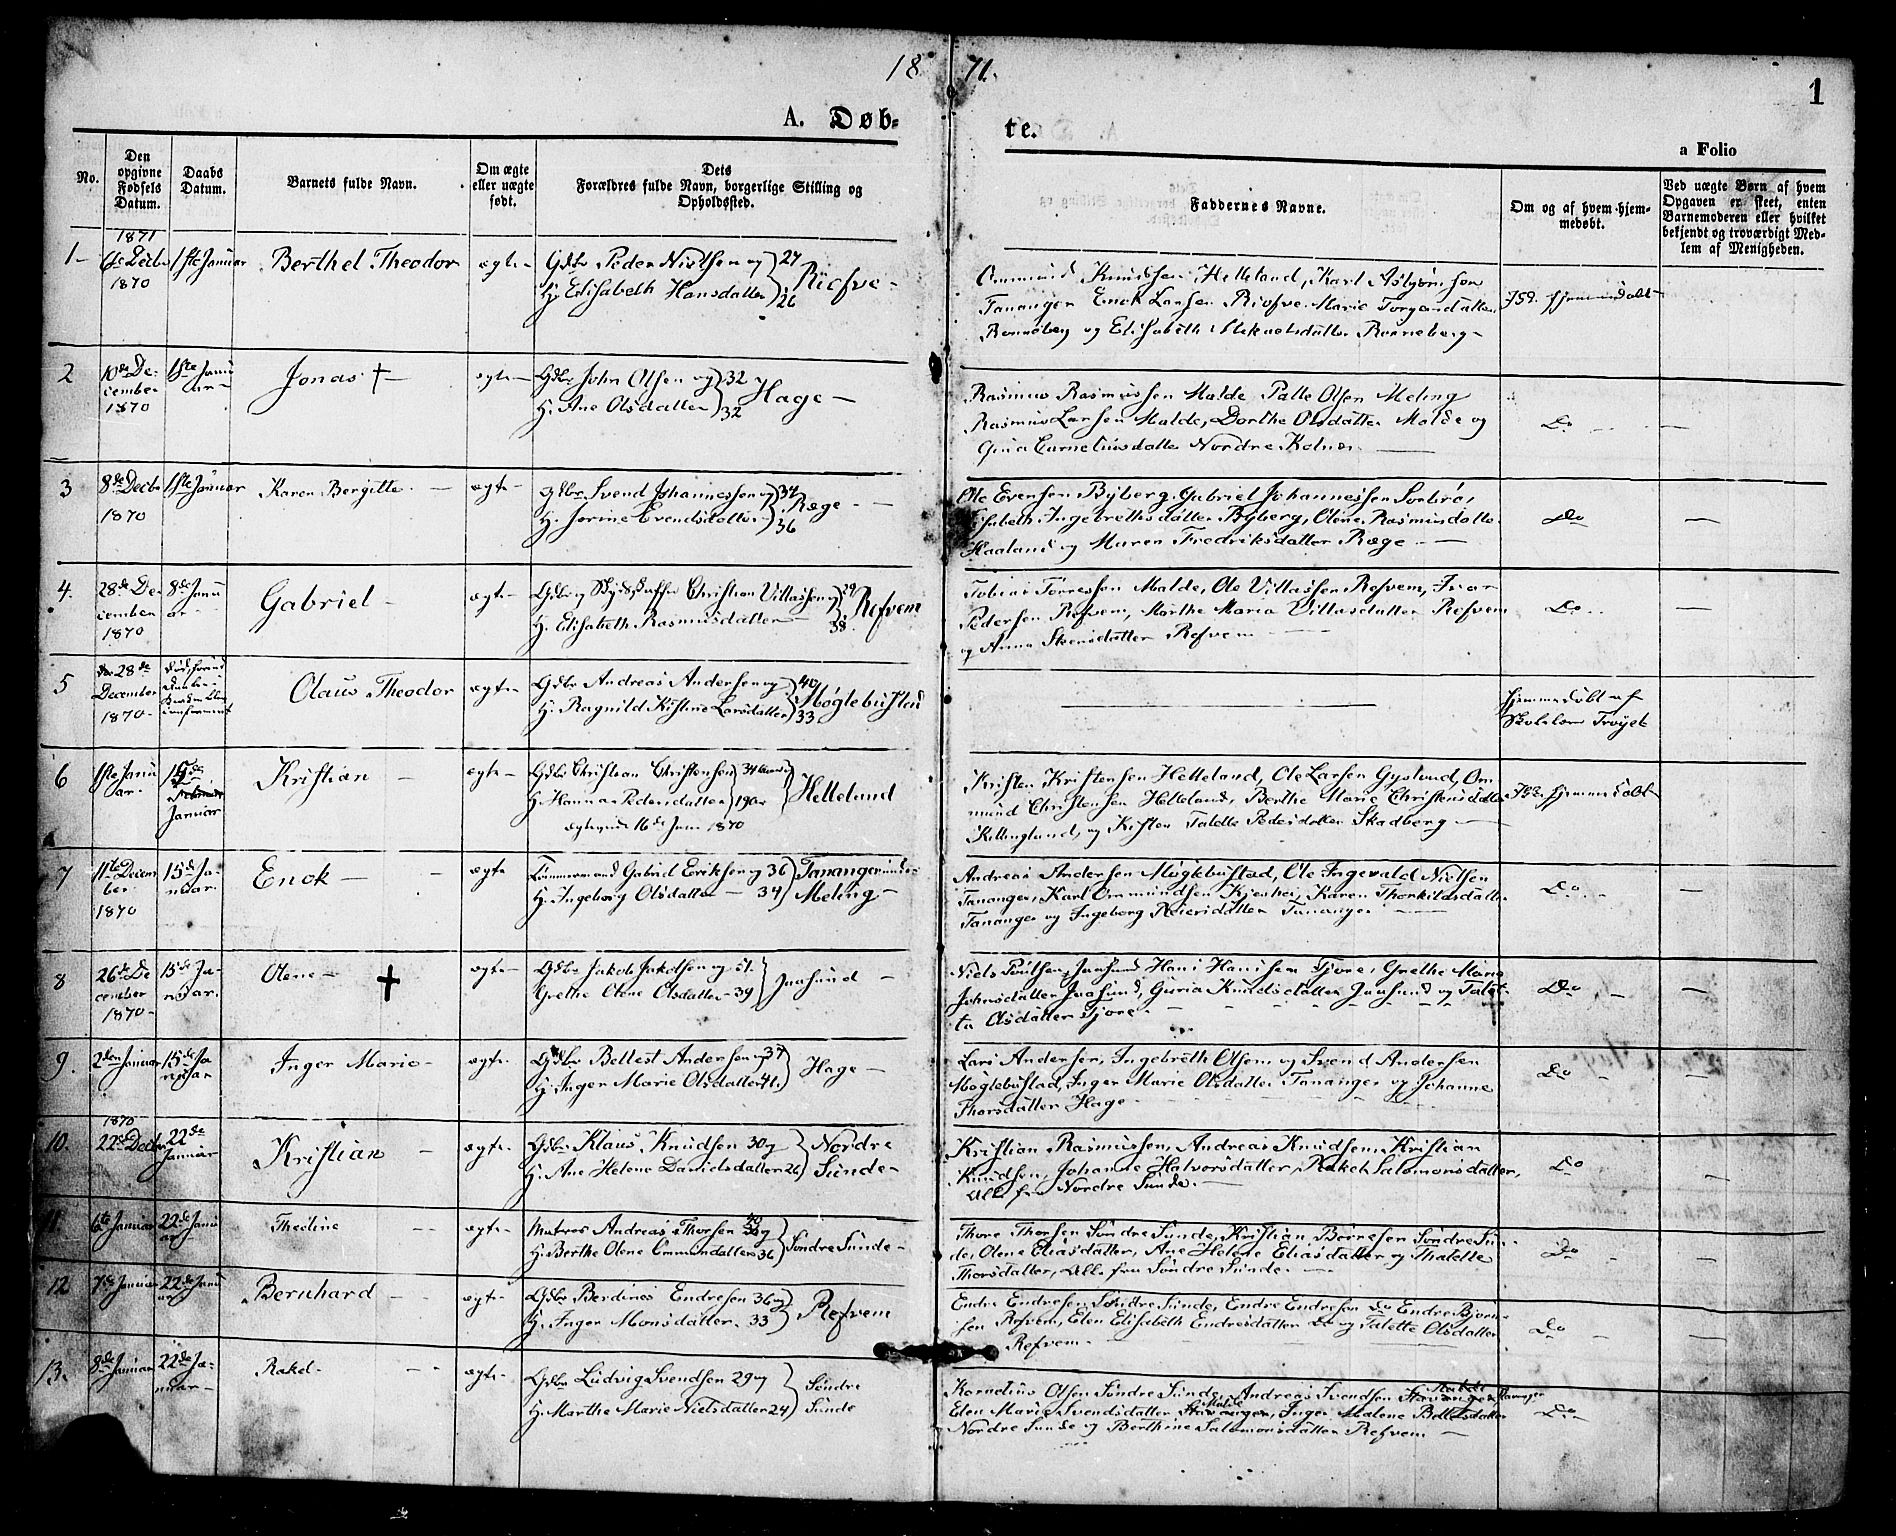 18 71.
1
A. Døb-
te.
a Folio
No.
Den opgivne Fødsels Datum.
Daabs Datum.
Barnets fulde Navn.
Om ægte eller uægte født.
Dets
Forældres fulde Navn, borgerlige Stilling og
Opholdssted.
Faddernes Navne.
Om og af hvem hjem-
medøbt.
Ved uægte Børn af hvem
Opgaven er skeet, enten
Barnemoderen eller hvilket
bekjendt og troværdigt Med-
lem af Menigheden.
1871
1 Decbr 1ste Januar Berthel Theodor ægte Gdbr Peder Nielsen og 27
1870 H. Elisabeth Hansdatter 26
Ommund Knudsen Helleland, Karl Asbjørnsen
Tananger Enok Larsen Marie Torgersdatter
Ronneberg og Elisabeth Ronneberg
hjemmedøbt
2 10de De-
cember
1870
1ste Janu
ar
Jonas † ægte Gdbr John Olsen og 32
H. Ane Olsdatter 32
Hage
Rasmus Rasmussen Malde Palle Olsen Meling
Rasmus Larsen Malde, Dorthe Olsdatter Malde og
Gina Corneliusdatter Nordre
Do
3 8de Decbr
1870
1ste Januar
Karen Bergitte ægte Gdbr Svend Johannessen og 34
H. Serine Svendsdatter 36
Ræge
Ole Evensen Byberg. Gabriel Johannessen
Ingebrethsdatter Byberg, Olene Rasmusdatter
Haaland og Maren Fredriksdatter Ræge
Do
4. 28de De
cember
1870
8de Janu
ar
Gabriel ægte Gdbr og Christian Villassen og 29
H. Elisabeth Rasmusdatter 38.
Refvem
Tobias Torressen Malde, Ole Villassen Refvem, Ivar
Pedersen Refvem, Marthe Maria Villasdatter Refvem
og Anna Refvem
Do
5 28de
December
1870
Olaus Theodor ægte Gdbr Andreas Andersen og 40
H. Ragnild Kistine Larsdatter 33
Møglebustad
Hjemmedøbt af
6 1ste Janu
ar
15de
Januar
Kristian ægte Gdbr Christian Christensen 34
H. Hanna Pedersdatter 19
16de Juni 1870
Helleland
Kristen Kristensen Helleland, Ole Larsen Om
mund Christensen Helleland, Berthe Marie Christensdatter
og Kisten Talette Pedersdatter Skadberg
hjemmedøbt
7 11te Decem
ber
1870
15de Ja-
nuar.
Enok ægte Tømmermand Gabriel Eriksen og 36
H. Ingeborg Olsdatter 34
Tananger under
Meling
Andreas Andersen Møglebustad, Ole Ingevald Nielsen
Tananger, Karl Ommundsen Karen Thorkildsdatter
Tananger og Ingeborg Tananger
Do
8 26de De
cember
1870
15de Ja-
nuar.
Olene † ægte Gdbr Jakob Jakobsen og 51.
Grethe Olene Olsdatter 39
Jaasund
Niels Jaasund Hans Hansen Tjore, Grethe Marie
Johnsdatter Jaasund, Guria Knudsdatter Jaasund og Talet-
ta Olsdatter Tjore
Do
9. 2den Januar
15de Ja
nuar
Inger Marie ægte Gdbr Bellest Andersen og 37
H. Inger Marie Olsdatter 41.
Hage
Lars Andersen, Ingebreth Olsen og Svend Andersen
Møglebustad, Inger Marie Olsdatter Tananger og Johanne
Thorsdatter Hage
Do
10. 1870
22de Decbr
22de
Januar
Kristian ægte Gdbr Klaus Knudsen 30 og
H. Ane Helene Davidsdatter 26
Nordre
Sunde
Kristian Rasmussen, Andreas Knudsen, Kristian
Knudsen, Johanne Halvorsdatter, Rakel Salomonsdatter,
Alle fra Nordre Sunde.
Do
11. 6te Januar
22de Janu
ar
Theoline ægte Matros Andreas Thorsen 40 og
H. Berthe Olene Ommundsdatter 36
Søndre Sunde
Thore Thorsen Søndre Sunde, Kristian Børresen Søndre Sun-
de, Olene Eliasdatter, Ane Helene Eliasdatter og Thalette
Thorsdatter, Alle fra Søndre Sunde.
Do
12 7de Januar
22de Janu
ar
Bernhard ægte Gdbr Berdines Endresen 36 og
H. Inger Monsdatter 33
Refvem
Endre Endresen Søndre Sunde, Endre Endresen do Endre Bjørn-
sen Refvem, Elen Elisabeth Endresdatter do og Talette Olsdatter
Refvem
Do
13. 8de Januar
22de Ja-
nuar
Rakel ægte Gdbr Ludvig Svendsen 29 og
H. Marthe Marie Nielsdatter 24
Søndre
Sunde
Kornelius Olsen Søndre Sunde, Andreas Svendsen Malde
Elen Marie Svendsdatter Malde Inger Malene Bellesdatter
Nordre Sunde og Berthine Salomonsdatter Refvem
Do